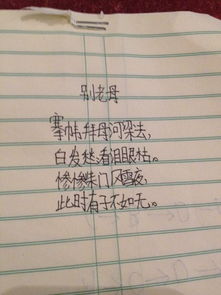 别老母
搴帏拜母河梁去,
白发愁看泪眼枯。
惨惨柴门风雪夜,
此时有子不如无。